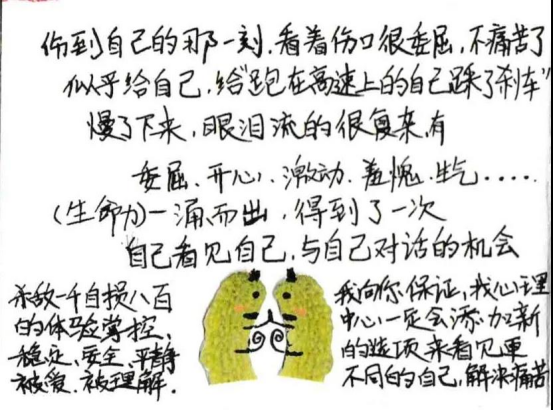 伤到自己的那一刻,看着伤口很委屈,不痛苦了
似乎给自己,给"跑在高速上的自己踩了刹车"
慢了下来,眼泪流的很复杂,有
委屈、开心、激动、羞愧、生气.....
(生命力)一涌而出,得到了一次
自己看见自己,与自己对话的机会
杀敌一千自损八百
的体验掌控、
稳定、安全、平静
被爱、被理解.
我向你保证,我心理
中心一定会添加新
的选项来看见更
不同的自己,解决痛苦